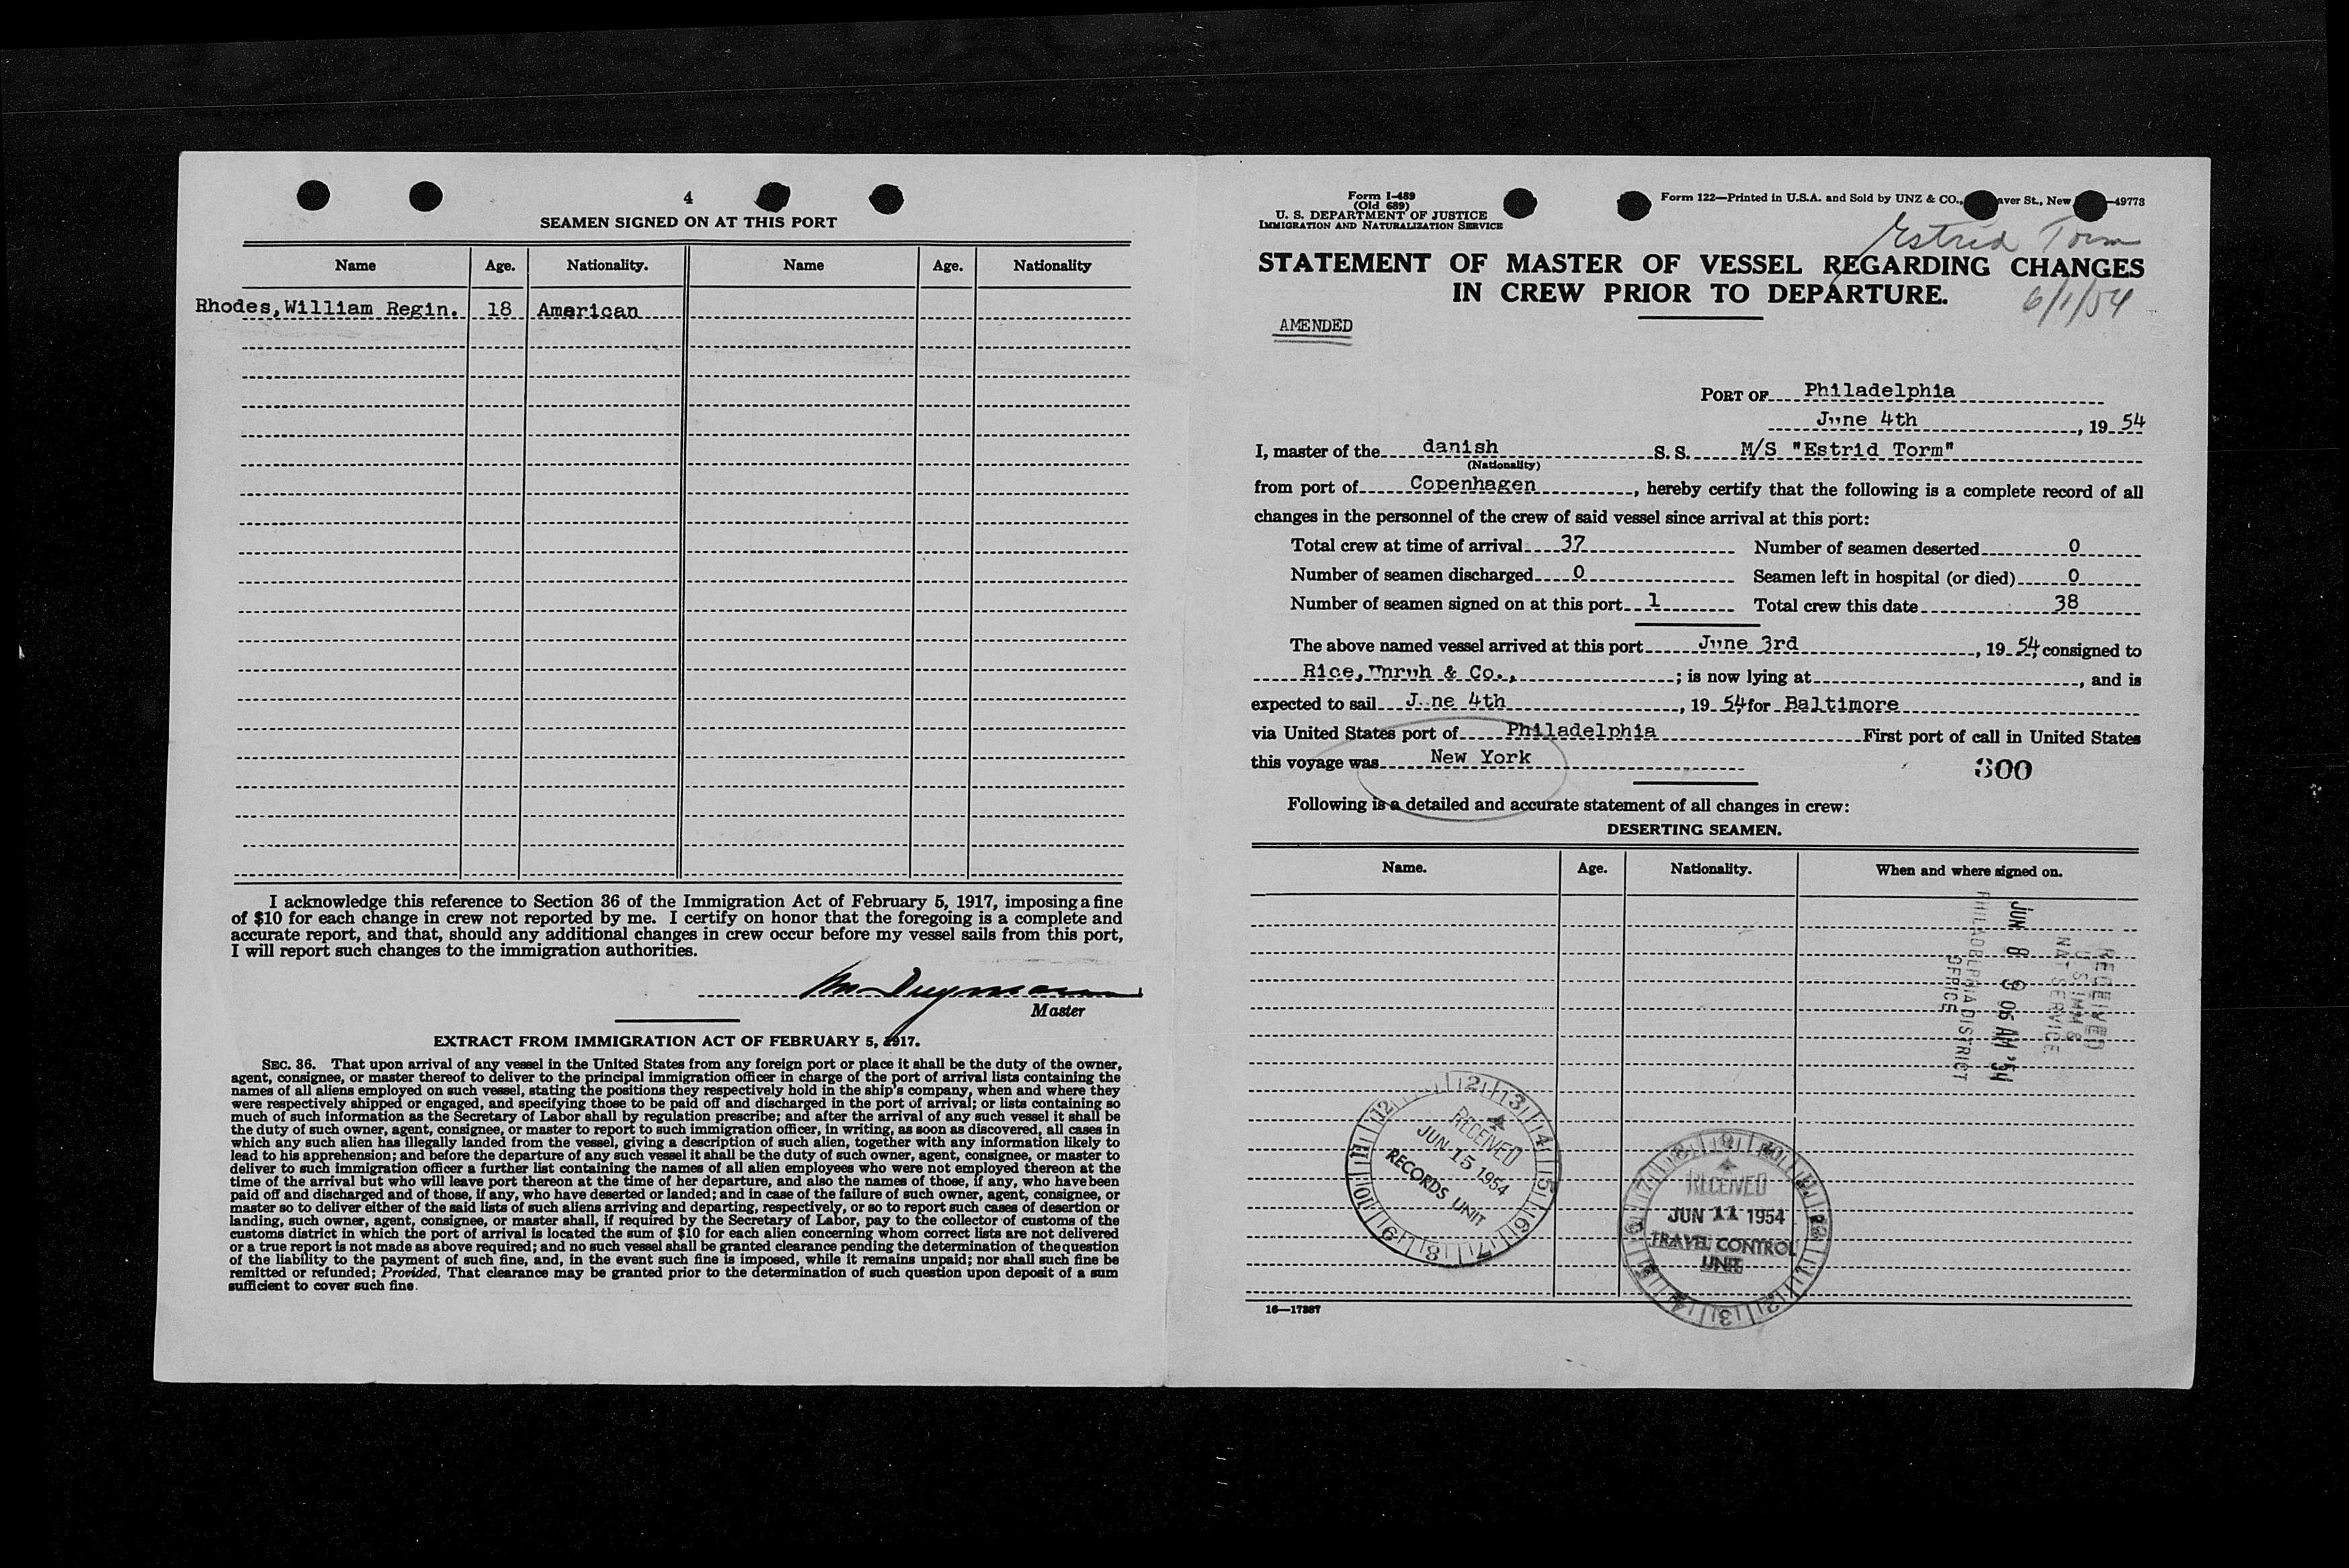 4
SEAMEN SIGNED ON AT THIS PORT
Name Age. Nationality. Name Age. Nationality
Rhodes,William Regin. 18 American
I acknowledge this reference to Section 36 of the Immigration Act of February 5, 1917, imposing a fine
of $10 for each change in crew not reported by me. I certify on honor that the foregoing is a complete and
accurate report, and that, should any additional changes in crew occur before my vessel sails from this port,
I will report such changes to the immigration authorities.
Master
EXTRACT FROM IMMIGRATION ACT OF FEBRUARY 5, 1917.
SEC. 36. That upon arrival of any vessel in the United States from any foreign port or place it shall be the duty of the owner,
agent, consignee, or master thereof to deliver to the principal immigration officer in charge of the port of arrival lists containing the
names of all aliens employed on such vessel, stating the positions they respectively hold in the ship's company, when and where they
were respectively shipped or engaged, and specifying those to be paid off and discharged in the port of arrival; or lists containing so
much of such information as the Secretary of Labor shall by regulation prescribe; and after the arrival of any such vessel it shall be
the duty of such owner, agent, consignee, or master to report to such immigration officer, in writing, as soon as discovered, all cases in
which any such alien has illegally landed from the vessel, giving a description of such alien, together with any information likely to
lead to his apprehension; and before the departure of any such vessel it shall be the duty of such owner, agent, consignee, or master to
deliver to such immigration officer a further list containing the names of all alien employees who were not employed thereon at the
time of the arrival but who will leave port thereon at the time of her departure, and also the names of those, if any, who have been
paid off and discharged and of those, if any, who have deserted or landed; and in case of the failure of such owner, agent, consignee, or
master so to deliver either of the said lists of such aliens arriving and departing, respectively, or so to report such cases of desertion or
landing, such owner, agent, consignee, or master shall, if required by the Secretary of Labor, pay to the collector of customs of the
customs district in which the port of arrival is located the sum of $10 for each alien concerning whom correct lists are not delivered
or a true report is not made as above required; and no such vessel shall be granted clearance pending the determination of the question
of the liability to the payment of such fine, and, in the event such fine is imposed, while it remains unpaid; nor shall such fine be
remitted or refunded; Provided, That clearance may be granted prior to the determination of such question upon deposit of a sum
sufficient to cover such fine.
Form I-489
(Old 689)
U. S. DEPARTMENT OF JUSTICE
IMMIGRATION AND NATURALIZATION SERVICE
Form 122—Printed in U.S.A. and Sold by UNZ & CO., aver St., New —49773
Estrid Torm
STATEMENT OF MASTER OF VESSEL REGARDING CHANGES
IN CREW PRIOR TO DEPARTURE.
6/1/54
AMENDED
PORT OF Philadelphia
June 4th, 19 54
I, master of the danish S. S. M/S "Estrid Torm"
(Nationality)
from port of Copenhagen, hereby certify that the following is a complete record of all
changes in the personnel of the crew of said vessel since arrival at this port:
Total crew at time of arrival 37 Number of seamen deserted 0
Number of seamen discharged 0 Seamen left in hospital (or died) 0
Number of seamen signed on at this port 1 Total crew this date 38
The above named vessel arrived at this port June 3rd, 19 54, consigned to
Rice, Unruh & Co., ; is now lying at , and is
expected to sail June 4th, 19 54, for Baltimore
via United States port of Philadelphia First port of call in United States
this voyage was New York
300
Following is a detailed and accurate statement of all changes in crew:
DESERTING SEAMEN.
Name. Age. Nationality. When and where signed on.
RECEIVED
U S IMM &
NAT SERVICE
JUN 8 9 06 AM '54
PHILADELPHIA DISTRICT
OFFICE
RECEIVED
JUN 15 1954
RECORDS UNIT
RECEIVED
JUN 11 1954
TRAVEL CONTROL
UNIT
16—17387